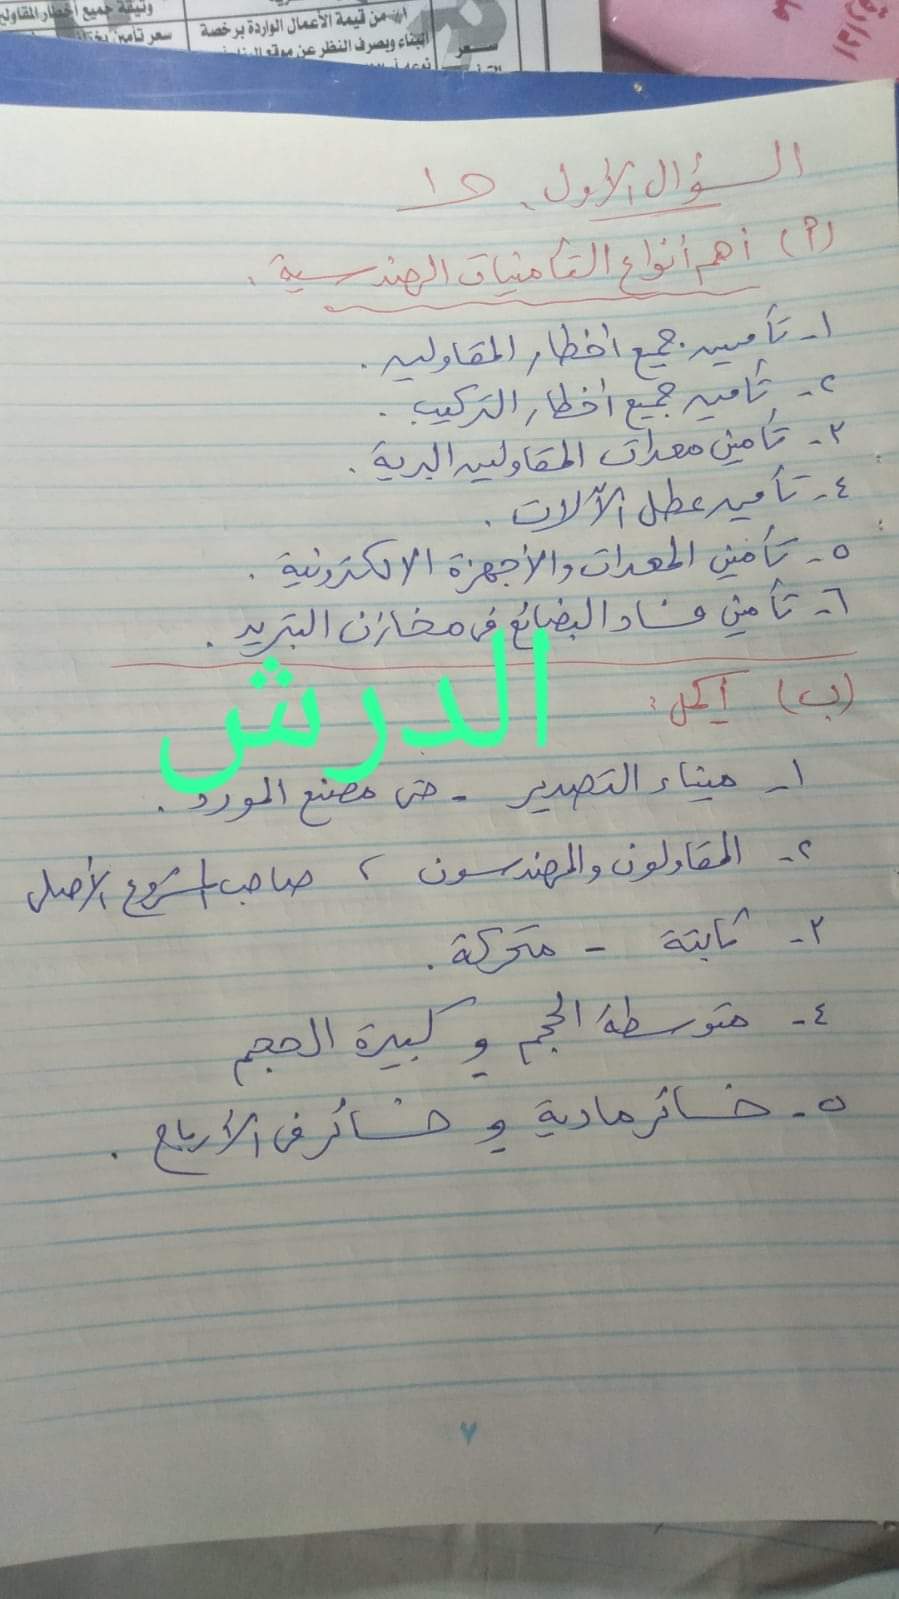 وثيقة جميع أخطار المقاولين
من قيمة الأعمال الواردة برخصة
سعر تأمين
البناء وبصرف النظر عن موقع
سعر
السؤال الأول
(أ) أهم أنواع التأمينات الهندسية .
١- تأمين جميع أخطار المقاولين .
٢- تأمين جميع أخطار التركيب .
٣- تأمين معدات المقاولين البرية .
٤- تأمين عطل الآلات .
٥- تأمين المعدات والأجهزة الالكترونية .
٦- تأمين فساد البضائع فى مخازن التبريد .
الدرش
(ب) أكمل :
١- ميناء التصدير - حتى مصنع المورد .
٢- المقاولون والمهندسون ، صاحب المشروع الأصلى
٣- ثابتة - متحركة .
٤- متوسطة الحجم و كبيرة الحجم
٥- خسائر مادية و خسائر فى الأرباح .
٧